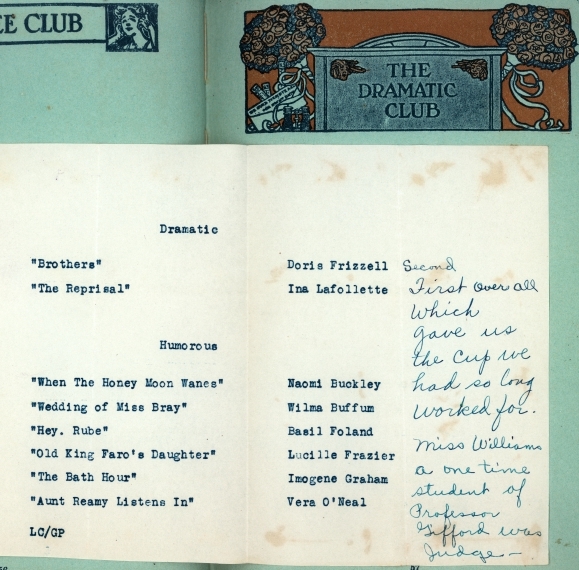 EE CLUB
THE
DRAMATIC
CLUB
Dramatic
"Brothers" Doris Frizzell Second
"The Reprisal" Ina Lafollette First over all
which
gave us
the cup we
had so long
worked for.
Humorous
"When The Honey Moon Wanes" Naomi Buckley
"Wedding of Miss Bray" Wilma Buffum
"Hey. Rube" Basil Foland
"Old King Faro's Daughter" Lucille Frazier
"The Bath Hour" Imogene Graham
"Aunt Reamy Listens In" Vera O'Neal
Miss Williams
a one time
student of
Professor
Gifford was
Judge —
LC/GP